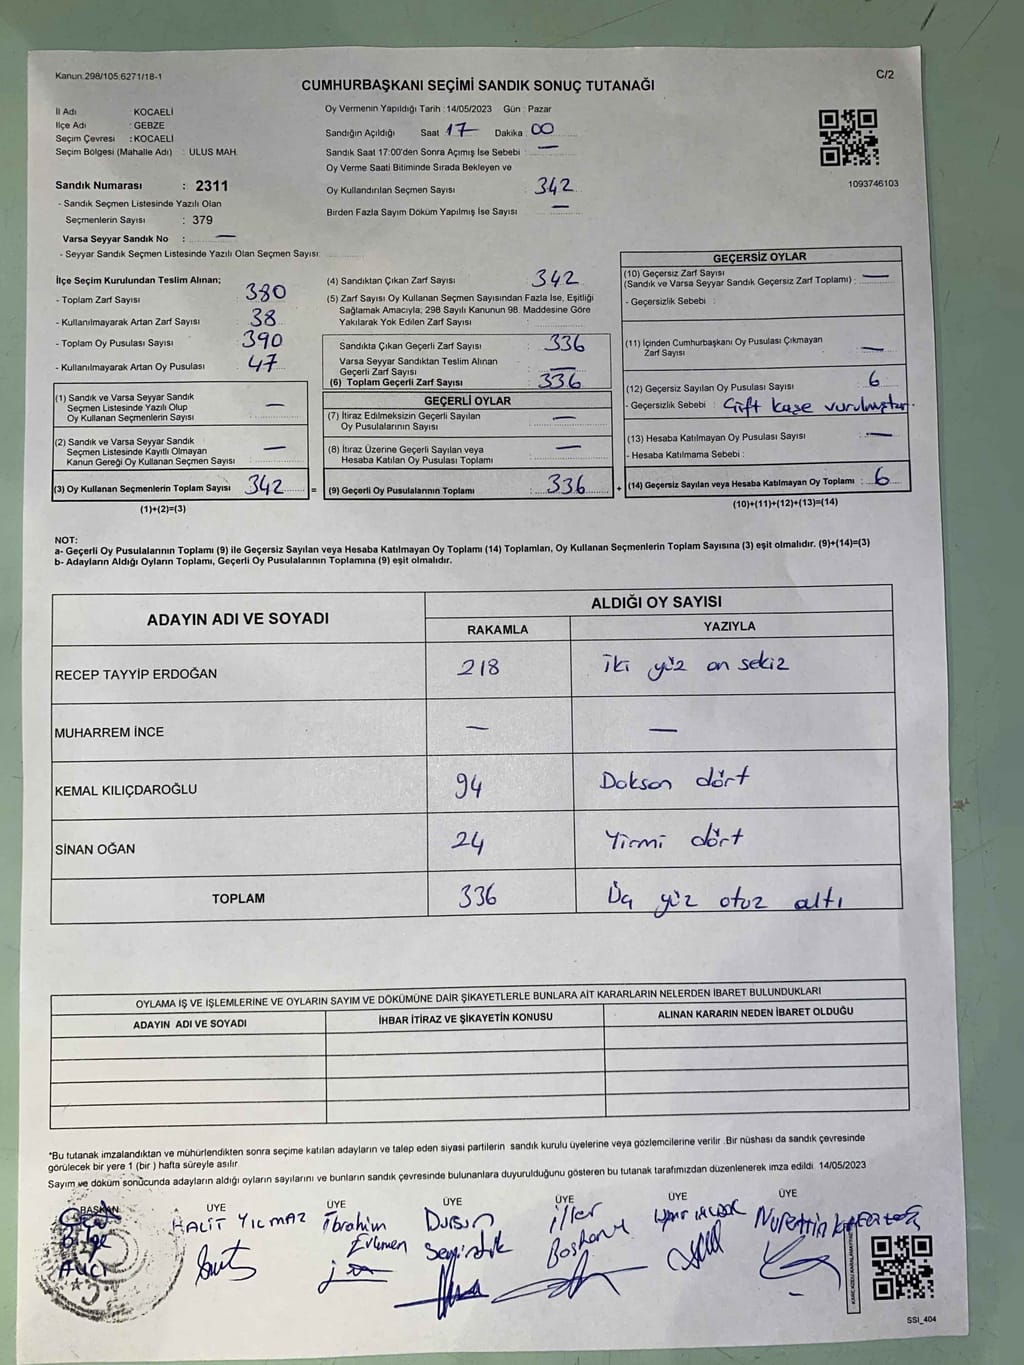 Kanun.298/105.6271/18-1
C/2
CUMHURBAŞKANI SEÇİMİ SANDIK SONUÇ TUTANAĞI
İl Adı KOCAELİ
İlçe Adı : GEBZE
Seçim Çevresi : KOCAELİ
Seçim Bölgesi (Mahalle Adı) : ULUS MAH.
Sandık Numarası : 2311
- Sandık Seçmen Listesinde Yazılı Olan
Seçmenlerin Sayısı : 379
Varsa Seyyar Sandık No : —
- Seyyar Sandık Seçmen Listesinde Yazılı Olan Seçmen Sayısı:
Oy Vermenin Yapıldığı Tarih : 14/05/2023 Gün : Pazar
Sandığın Açıldığı Saat 17 Dakika 00
Sandık Saat 17:00'den Sonra Açımış İse Sebebi : —
Oy Verme Saati Bitiminde Sırada Bekleyen ve
Oy Kullandırılan Seçmen Sayısı 342
Birden Fazla Sayım Döküm Yapılmış İse Sayısı —
1093746103
İlçe Seçim Kurulundan Teslim Alınan;
- Toplam Zarf Sayısı 380
- Kullanılmayarak Artan Zarf Sayısı 38
- Toplam Oy Pusulası Sayısı 390
- Kullanılmayarak Artan Oy Pusulası 47
(1) Sandık ve Varsa Seyyar Sandık
Seçmen Listesinde Yazılı Olup
Oy Kullanan Seçmenlerin Sayısı —
(2) Sandık ve Varsa Seyyar Sandık
Seçmen Listesinde Kayıtlı Olmayan
Kanun Gereği Oy Kullanan Seçmen Sayısı —
(3) Oy Kullanan Seçmenlerin Toplam Sayısı 342 =
(1)+(2)=(3)
(4) Sandıktan Çıkan Zarf Sayısı 342
(5) Zarf Sayısı Oy Kullanan Seçmen Sayısından Fazla İse, Eşitliği
Sağlamak Amacıyla; 298 Sayılı Kanunun 98. Maddesine Göre
Yakılarak Yok Edilen Zarf Sayısı
Sandıkta Çıkan Geçerli Zarf Sayısı 336
Varsa Seyyar Sandıktan Teslim Alınan
Geçerli Zarf Sayısı —
(6) Toplam Geçerli Zarf Sayısı 336
GEÇERLİ OYLAR
(7) İtiraz Edilmeksizin Geçerli Sayılan
Oy Pusulalarının Sayısı —
(8) İtiraz Üzerine Geçerli Sayılan veya
Hesaba Katılan Oy Pusulası Toplamı —
(9) Geçerli Oy Pusulalarının Toplamı : 336 +
GEÇERSİZ OYLAR
(10) Geçersiz Zarf Sayısı
(Sandık ve Varsa Seyyar Sandık Geçersiz Zarf Toplamı) : —
- Geçersizlik Sebebi :
(11) İçinden Cumhurbaşkanı Oy Pusulası Çıkmayan
Zarf Sayısı —
(12) Geçersiz Sayılan Oy Pusulası Sayısı 6
- Geçersizlik Sebebi : Çift kaşe vurulmuştur.
(13) Hesaba Katılmayan Oy Pusulası Sayısı —
- Hesaba Katılmama Sebebi :
(14) Geçersiz Sayılan veya Hesaba Katılmayan Oy Toplamı : 6
(10)+(11)+(12)+(13)=(14)
NOT:
a- Geçerli Oy Pusulalarının Toplamı (9) ile Geçersiz Sayılan veya Hesaba Katılmayan Oy Toplamı (14) Toplamları, Oy Kullanan Seçmenlerin Toplam Sayısına (3) eşit olmalıdır. (9)+(14)=(3)
b- Adayların Aldığı Oyların Toplamı, Geçerli Oy Pusulalarının Toplamına (9) eşit olmalıdır.
ADAYIN ADI VE SOYADI ALDIĞI OY SAYISI
RAKAMLA YAZIYLA
RECEP TAYYİP ERDOĞAN 218 İki yüz on sekiz
MUHARREM İNCE — —
KEMAL KILIÇDAROĞLU 94 Doksan dört
SİNAN OĞAN 24 Yirmi dört
TOPLAM 336 Üç yüz otuz altı
OYLAMA İŞ VE İŞLEMLERİNE VE OYLARIN SAYIM VE DÖKÜMÜNE DAİR ŞİKAYETLERLE BUNLARA AİT KARARLARIN NELERDEN İBARET BULUNDUKLARI
ADAYIN ADI VE SOYADI İHBAR İTİRAZ VE ŞİKAYETİN KONUSU ALINAN KARARIN NEDEN İBARET OLDUĞU
*Bu tutanak imzalandıktan ve mühürlendikten sonra seçime katılan adayların ve talep eden siyasi partilerin sandık kurulu üyelerine veya gözlemcilerine verilir .Bir nüshası da sandık çevresinde
görülecek bir yere 1 (bir ) hafta süreyle asılır
Sayım ve döküm sonucunda adayların aldığı oyların sayılarını ve bunların sandık çevresinde bulunanlara duyurulduğunu gösteren bu tutanak tarafımızdan düzenlenerek imza edildi 14/05/2023
BAŞKAN ÜYE ÜYE ÜYE ÜYE ÜYE ÜYE
Bilge AVCI
HALİT YILMAZ
İbrahim
Dursun
İlker
Nurettin
SSI_404